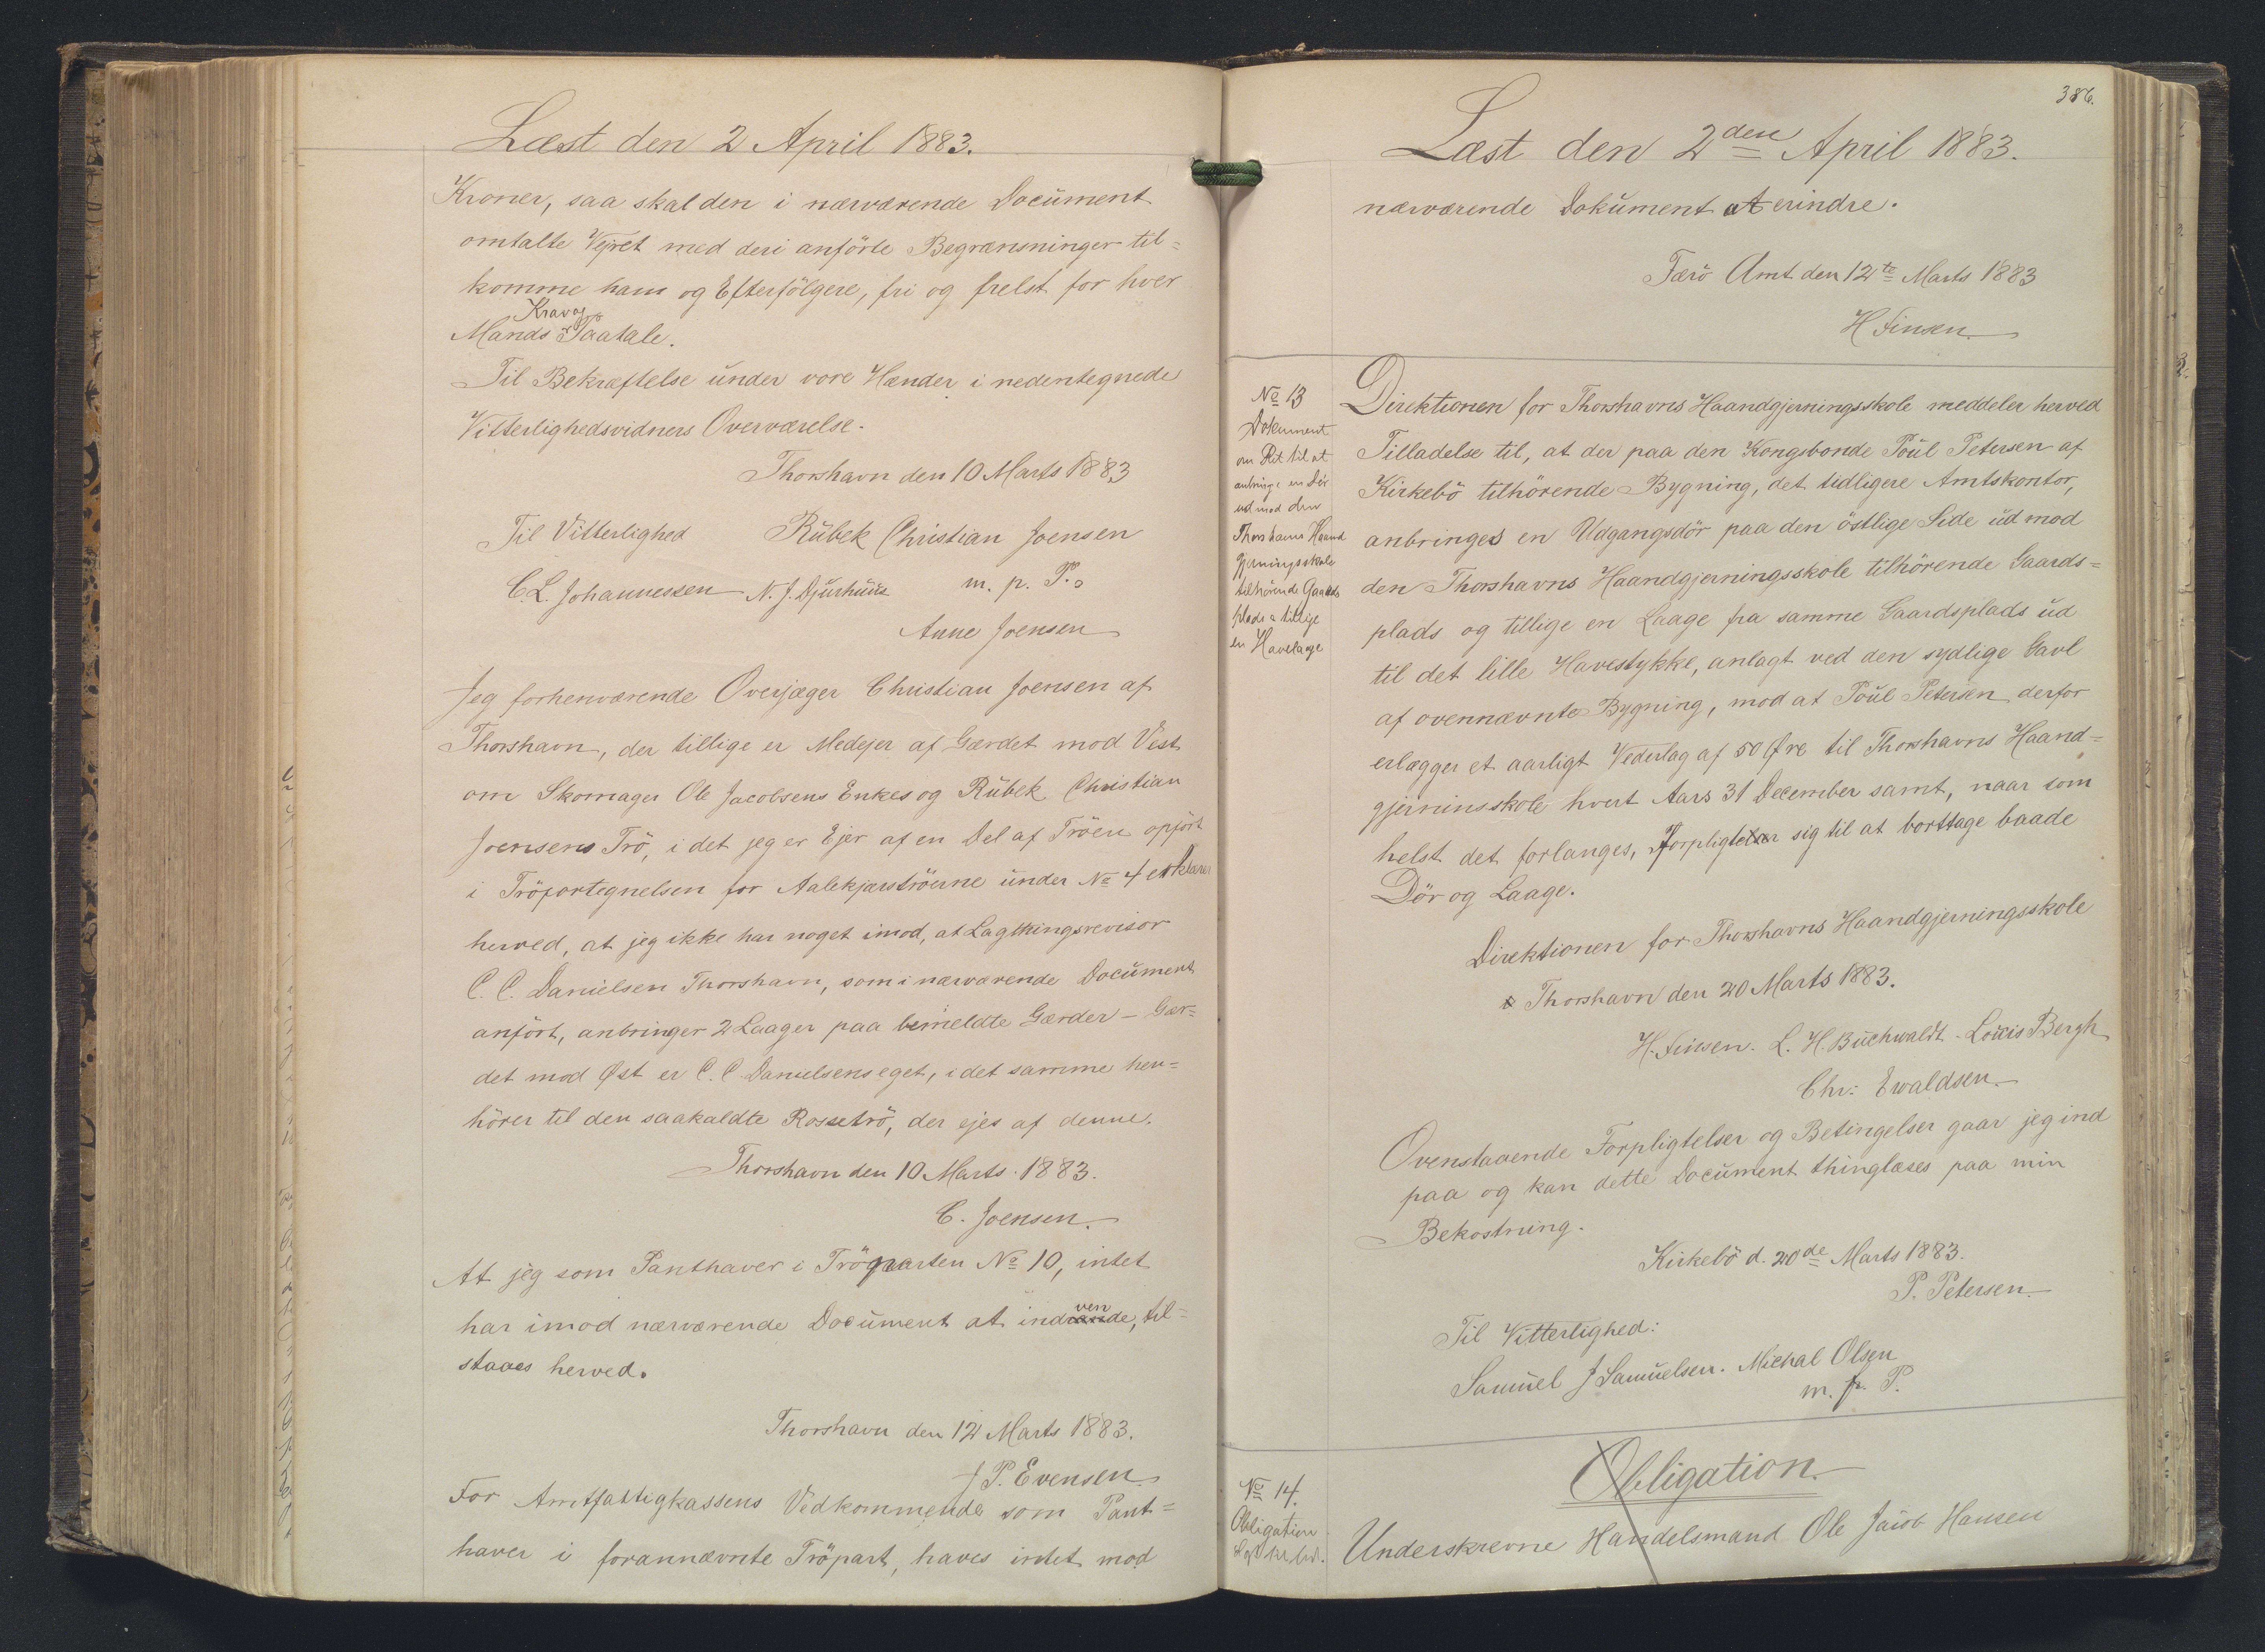 Læst den 2 April 1883.
Kroner, saa skal den i nærværende Document
omtalte Vejret med deri anførte Begrænsninger til=
komme ham og Efterfölgere, fri og frelst for hver
Krav og
Mands Paatale.
Til Bekræftelse under vore Hænder i nedentegnede
Vitterlighedsvidners Overværelse.
Thorshavn den 10 Marts 1883
Til Vitterlighed Rübek Christian Joensen
C.L. Johannessen N. J. Djurhuus m. p. P.
Anne Joensen
Jeg forhenværende Overjæger Christian Joensen af
Thorshavn, der tillige er Medejer af Gærdet mod Vest
om Skomager Ole Jacobsens Enkes og Rübek Christian
Joensens Trö, i det jeg er Ejer af en Del af Tröen opfört
i Tröfortegnelsen for Aalekjærströerne under No 4 erklærer
herved, at jeg ikke har noget imod, at Lagthingsrevisor
C. C. Danielsen Thorshavn, som i nærværende Document
anfört, anbringer 2 Laager paa bemeldte Gærder - Gær=
det mod Øst er C. C. Danielsens eget, i det samme hen=
hörer til den saakaldte Rossetrö, der ejes af denne.
Thorshavn den 10 Marts 1883.
C. Joensen.
At jeg som Panthaver i Tröparten No 10, intet
har imod nærværende Document at indvende, til=
staaes herved.
Thorshavn den 12 Marts 1883.
J P. Evensen
For Amtfattigkassens Vedkommende som Pant=
haver i forannævnte Tröpart, haves intet mod
386.
Læst den 2den April 1883.
nærværende Dokument at erindre.
Færö Amt den 12te Marts 1883
H Finsen
No 13
Dokument
om Ret til at
anbringe en Dör
ud mod den
Thorshavns Haand
gjerningsskole
tilhörende Gaards
plads & tillige
en Havelaage
Direktionen for Thorshavns Haandgjerningsskole meddeler herved
Tilladelse til, at der paa den Kongsbonde Poul Petersen af
Kirkebö tilhörende Bygning, det tidligere Amtskontor,
anbringes en Udgangsdör paa den östlige Side ud mod
den Thorshavns Haandgjerningsskole tilhörende Gaards=
plads og tillige en Laage fra samme Gaardsplads ud
til det lille Havestykke, anlagt ved den sydlige Gavl
af ovennævnte Bygning, mod at Poul Petersen derfor
erlægger et aarligt Vederlag af 50 Øre til Thorshavns Haand=
gjerninsskole hvert Aars 31 December samt, naar som
helst det forlanges, forpligter sig til at borttage baade
Dör og Laage.
Direktionen for Thorshavns Haandgjerningsskole
Thorshavn den 20 Marts 1883.
H. Finsen. L. H. Buchwaldt. Louis Bergh
Chr: Ewaldsen.
Ovenstaaende Forpligtelser og Betingelser gaar jeg ind
paa og kan dette Document thinglæses paa min
Bekostning.
Kirkebö d. 20de Marts 1883.
P. Petersen.
Til Vitterlighed:
Samuel J Samuelsen. Michal Olsen
m. p. P.
No 14.
Obligation
Obligation.
Underskrevne Handelsmand Ole Jacob Hansen